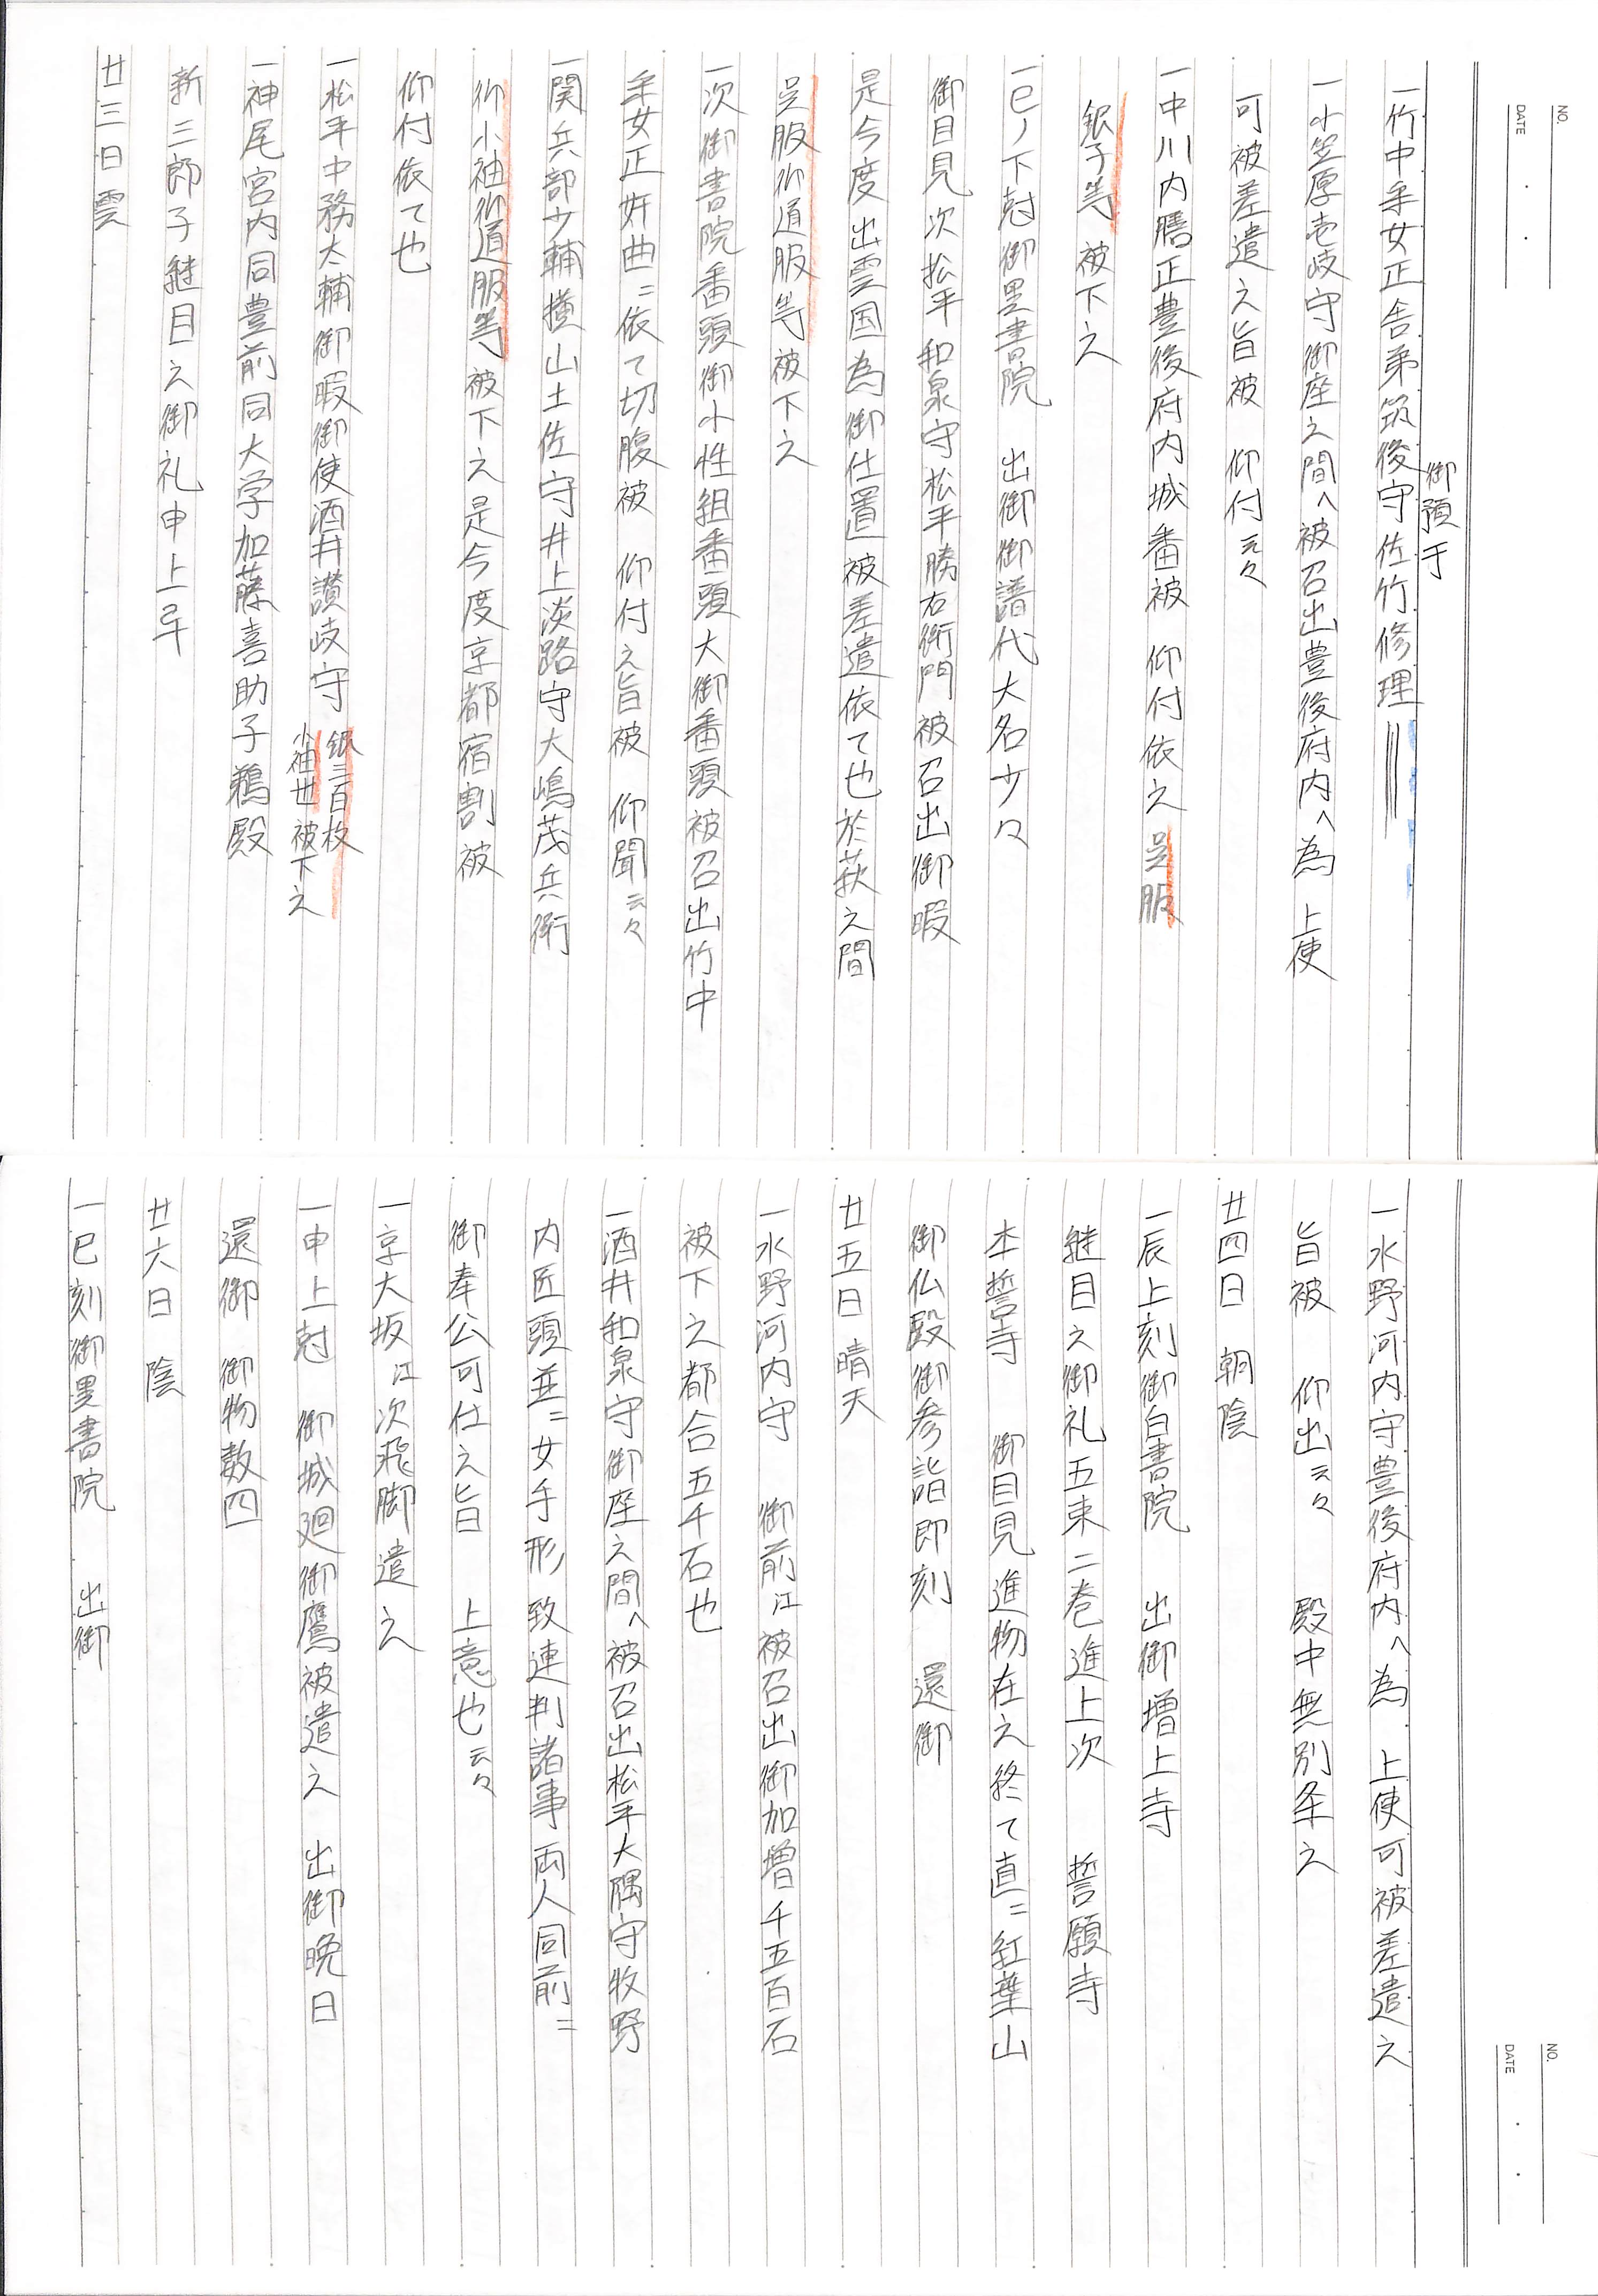 NO.
DATE
御預于
一竹中采女正舎弟筑後守佐竹修理
一小笠原壱岐守御座之間へ被召出豊後府内へ為　上使
可被差遣之旨被　仰付云々
一中川内膳正豊後府内城番被　仰付依之呉服
銀子等被下之
一巳ノ下尅御黒書院　出御御譜代大名少々
御目見次松平和泉守松平勝右衛門被召出御暇
是今度出雲国為御仕置被差遣依て也於萩之間
呉服御道服等被下之
一次御書院番頭御小性組番頭大御番頭被召出竹中
采女正奸曲ニ依て切腹被　仰付之旨被　仰聞云々
一関兵部少輔横山土佐守井上淡路守大嶋茂兵衛
御小袖御道服等被下之是今度京都宿割被
仰付依て也
一松平中務太輔御暇御使酒井讃岐守　銀三百枚
小袖卅　被下之
一神尾宮内同豊前同大学加藤喜助子鵜殿
新三郎子継目之御礼申上ル
廿三日雲
NO.
DATE
一水野河内守豊後府内へ為　上使可被差遣之
旨被　仰出云々　殿中無別条之
廿四日　朝陰
一辰上刻御白書院　出御増上寺
継目之御礼五束二巻進上次　誓願寺
本誓寺　御目見進物在之終て直ニ紅葉山
御仏殿御参詣即刻　還御
廿五日晴天
一水野河内守　御前江被召出御加増千五百石
被下之都合五千石也
一酒井和泉守御座之間へ被召出松平大隅守牧野
内匠頭並ニ女手形致連判諸事両人同前ニ
御奉公可仕之旨　上意也云々
一京大坂江次飛脚遣之
一申上尅　御城廻御鷹被遣之　出御晩日
還御　御物数四
廿六日　陰
一巳刻御黒書院　出御